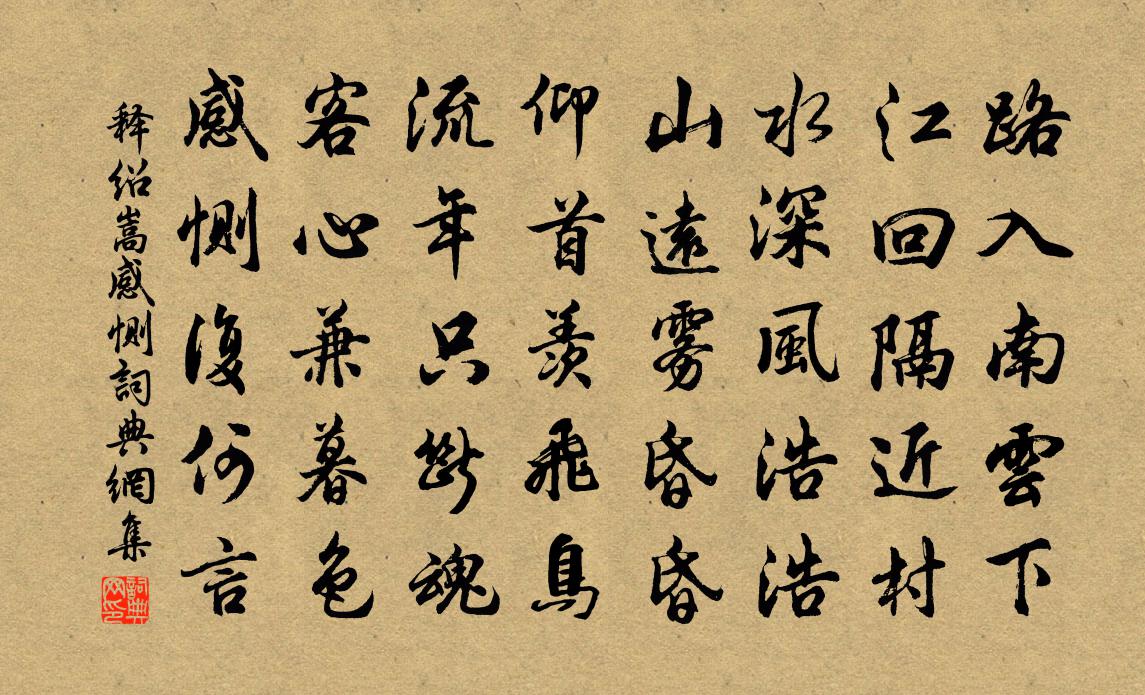 路入南雲下
江回隔近村
水深風浩浩
山遠雾昏昏
仰首羨飛鳥
流年只斷魂
客心兼暮色
感惻復何言
释绍嵩感惻詞典網集
詞典网印